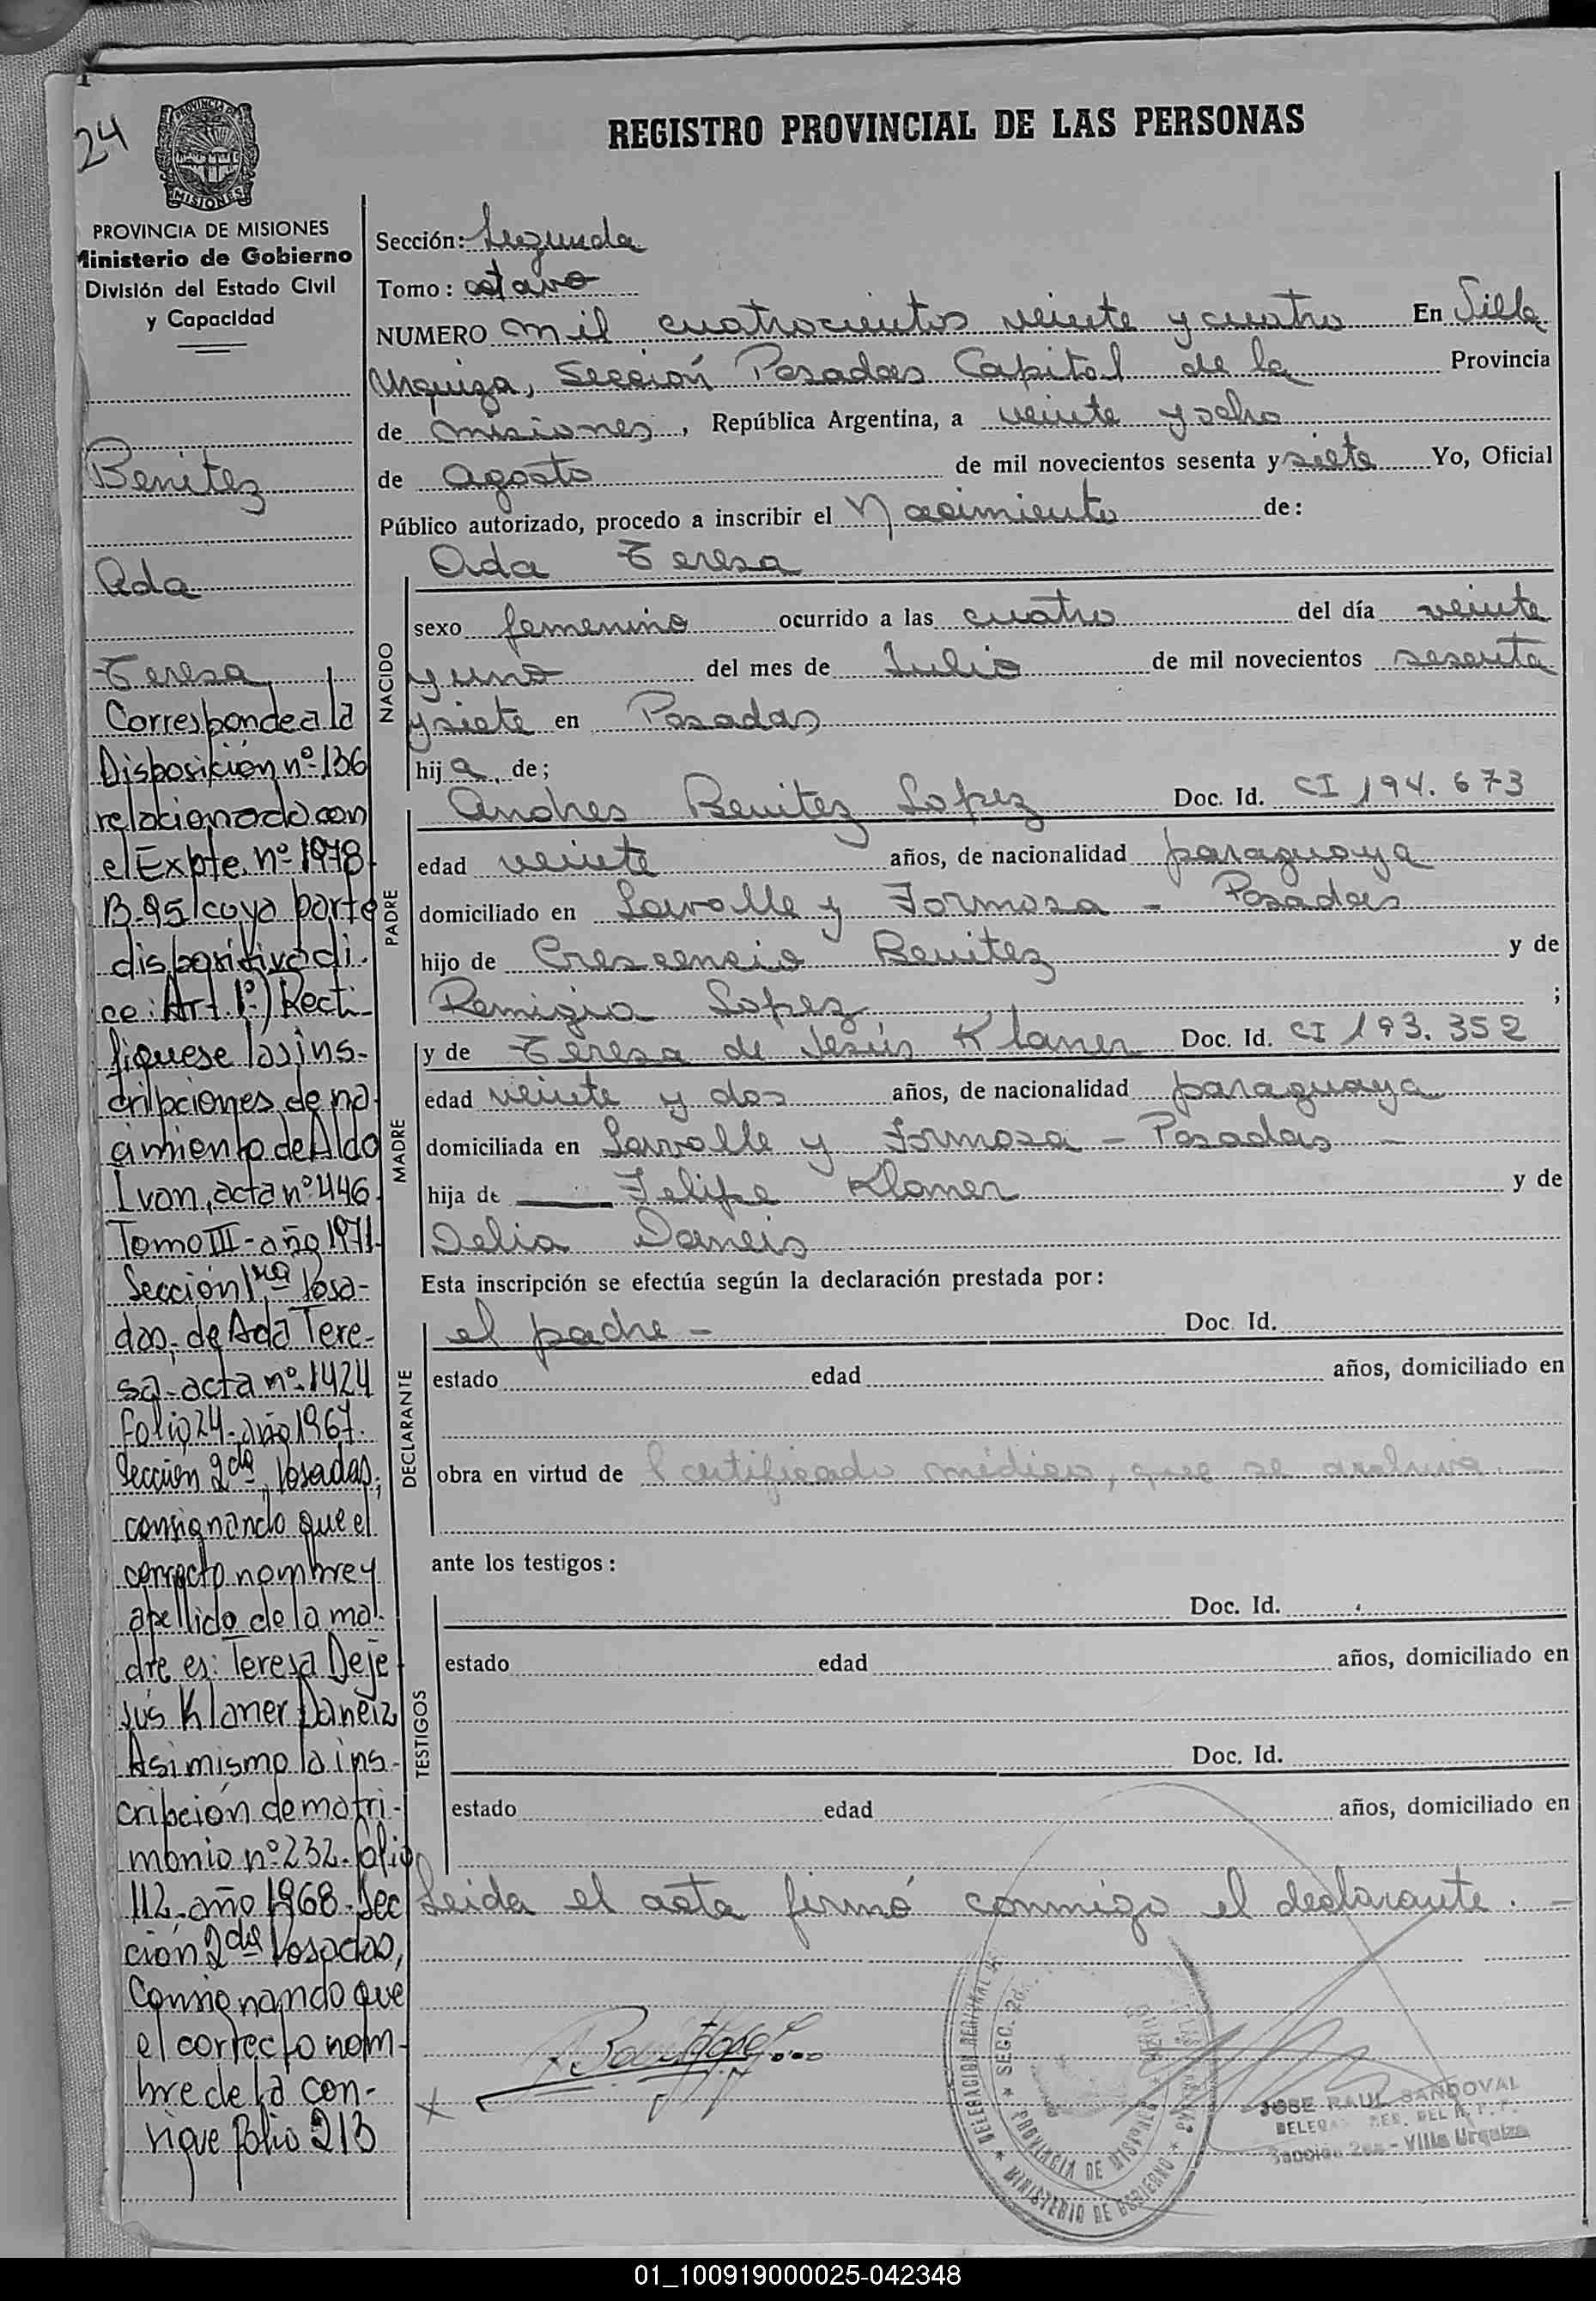 24
PROVINCIA DE
MISIONES
PROVINCIA DE MISIONES
Ministerio de Gobierno
División del Estado Civil
y Capacidad
REGISTRO PROVINCIAL DE LAS PERSONAS
Sección: Segunda
Tomo: octavo
NUMERO mil cuatrocientos veinte y cuatro En Villa
Urquiza, Sección Posadas Capital de la Provincia
de Misiones, República Argentina, a veinte y ocho
de agosto de mil novecientos sesenta y siete Yo, Oficial
Público autorizado, procedo a inscribir el Nacimiento de:
Ada Teresa
NACIDO
sexo femenino ocurrido a las cuatro del día veinte
y uno del mes de Julio de mil novecientos sesenta
y siete en Posadas
hij a de;
PADRE
Andres Benitez Lopez Doc. Id. CI 194.673
edad veinte años, de nacionalidad paraguaya
domiciliado en Lavalle y Formosa - Posadas
hijo de Crescencio Benitez y de
Remigia Lopez ;
MADRE
y de Teresa de Jesús Klamer Doc. Id. CI 193.352
edad veinte y dos años, de nacionalidad paraguaya
domiciliada en Lavalle y Formosa - Posadas -
hija de Felipe Klamer y de
Delia Daneis
Esta inscripción se efectúa según la declaración prestada por:
DECLARANTE
el padre - Doc. Id.
estado edad años, domiciliado en
obra en virtud de certificado médico, que se archiva.
ante los testigos:
TESTIGOS
Doc. Id.
estado edad años, domiciliado en
Doc. Id.
estado edad años, domiciliado en
Leida el acta firmó conmigo el declarante. -
Benitez
Ada
Teresa
Corresponde a la
Disposición nº 136
relacionado con
el Expte. nº 1978
B-95 cuya parte
dispositiva di-
ce: Art. 1º) Recti-
fiquese las ins-
cripciones de na
cimiento de Aldo
Ivan, acta nº 446
Tomo III - año 1971
Sección 1ra Posa-
das, de Ada Tere-
sa - acta nº 1424
folio 24 - año 1967.
Sección 2da Posadas,
consignando que el
correcto nombre y
apellido de la ma-
dre es: Teresa De Je
sús Klamer Daneiz
Asimismo la ins-
cripción de matri-
monio nº 232 - folio
112 - año 1968 - Sec
ción 2da Posadas,
Consignando que
el correcto nom-
bre de la con-
sigue folio 213
DELEGACION REGIONAL
SECC. 2da.
PROVINCIA DE MISIONES
MINISTERIO DE GOBIERNO
JOSE RAUL SANDOVAL
Sección 2da - Villa Urquiza
01_100919000025-042348